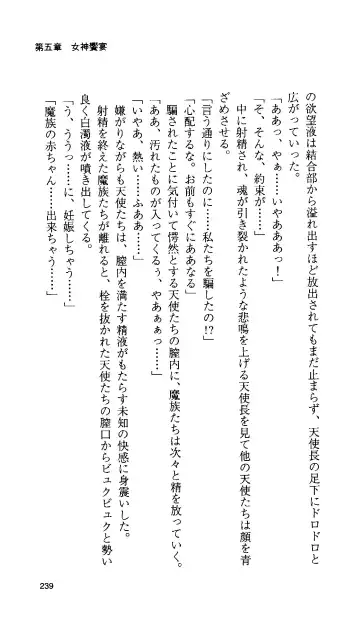 第五章　女神饗宴
の欲望液は結合部から溢れ出すほど放出されてもまだ止まらず、天使長の足下にドロドロと
広がっていった。
「ああっ、やぁ……いやあああっ！」
「そ、そんな、約束が……」
中に射精され、魂が引き裂かれたような悲鳴を上げる天使長を見て他の天使たちは顔を青
ざめさせる。
「言う通りにしたのに……私たちを騙したの!?」
「心配するな。お前もすぐにああなる」
騙されたことに気付いて愕然とする天使たちの膣内に、魔族たちは次々と精を放っていく。
「ああ、汚れたものが入ってくるぅ、やあぁぁっ……」
「いやあ、熱い……ふああ……」
嫌がりながらも天使たちは、膣内を満たす精液がもたらす未知の快感に身震いした。
射精を終えた魔族たちが離れると、栓を抜かれた天使たちの膣口からビュクビュクと勢い
良く白濁液が噴き出してくる。
「う、ううっ……に、妊娠しちゃう……」
「魔族の赤ちゃん……出来ちゃう……」
239